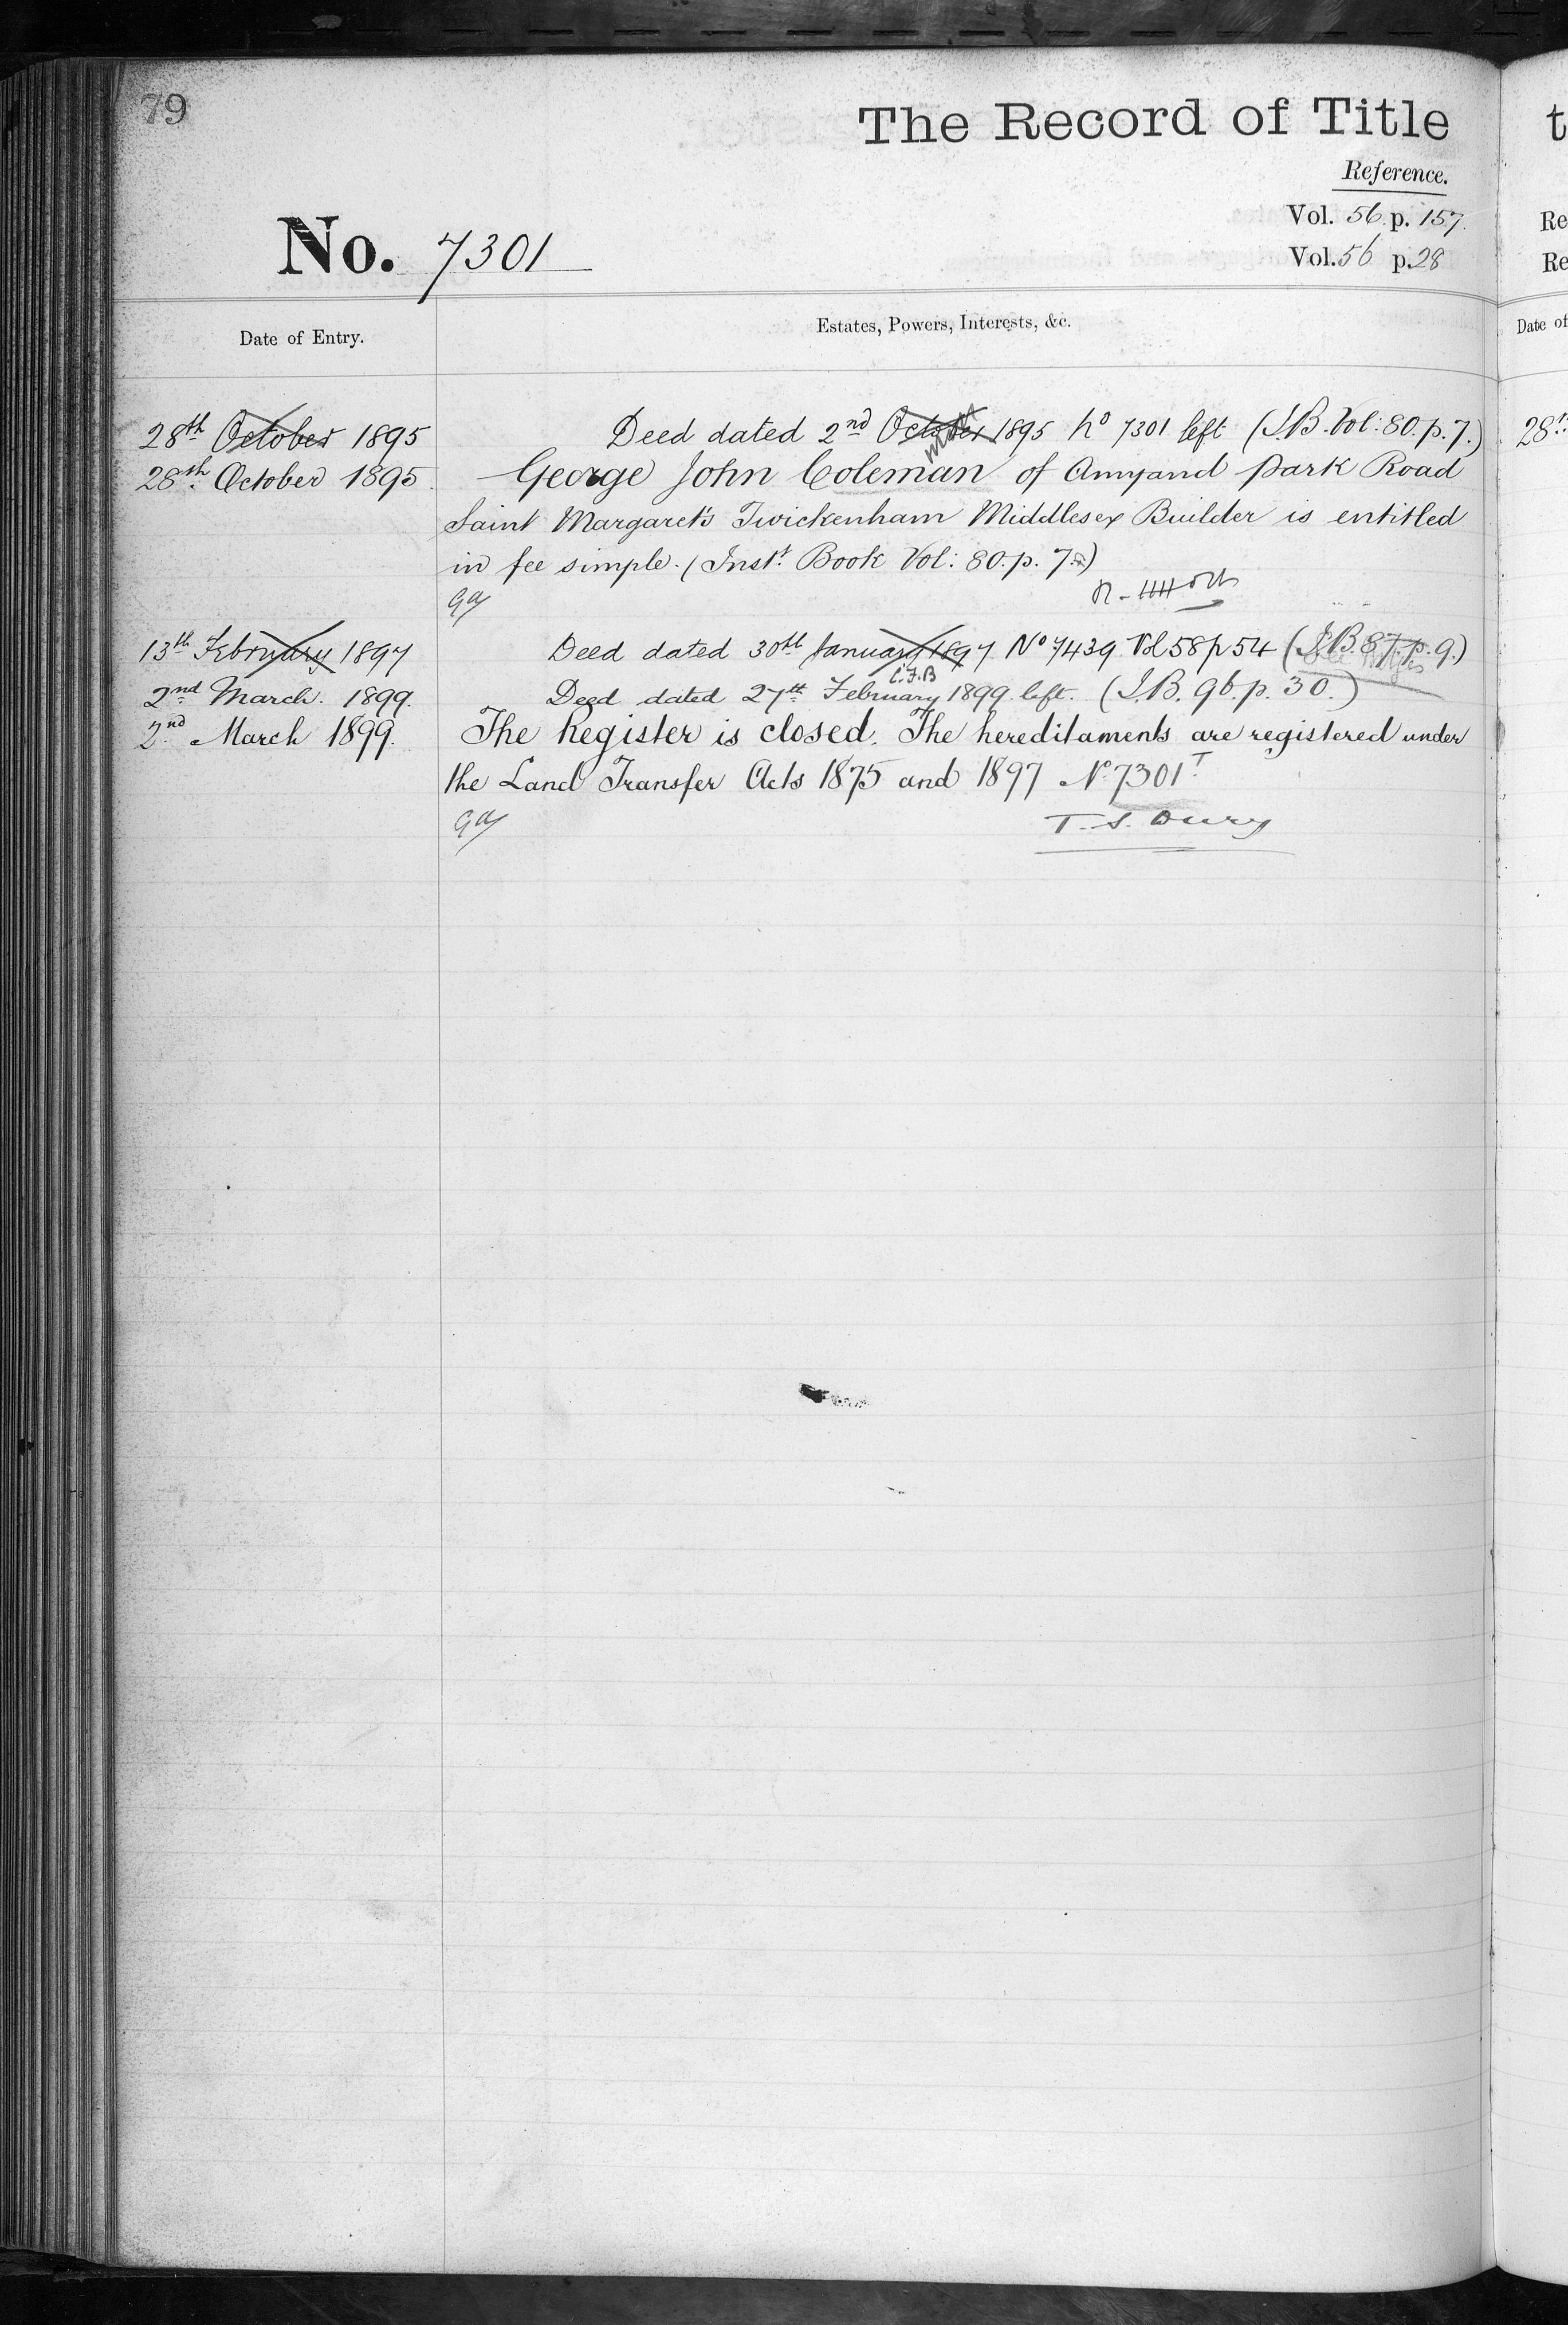 79
The Record of Title
Reference.
Vol. 56 p. 157
Vol. 56 p. 28
No. 7301
Date of Entry.
Estates, Powers, Interests, &c.
28th October 1895 Deed dated 2nd October 1895 No 7301 left (I.B. Vol: 80. p. 7.)
28th October 1895 George John Coleman of Amyand Park Road
Saint Margaret's Twickenham Middlesex Builder is entitled
in fee simple. (Inst. Book Vol: 80. p. 7.)
13th February 1897 Deed dated 30th January 1897 No 7439 Vol 58 p 54 (I.B. 87. p. 9.)
C.F.B
2nd March. 1899. Deed dated 27th February 1899 left. (I.B. 96. p. 30.)
2nd March 1899. The Register is closed. The hereditaments are registered under
the Land Transfer Acts 1875 and 1897 No 7301 T
T. S. Dury
t
Re
Re
Date of
28th